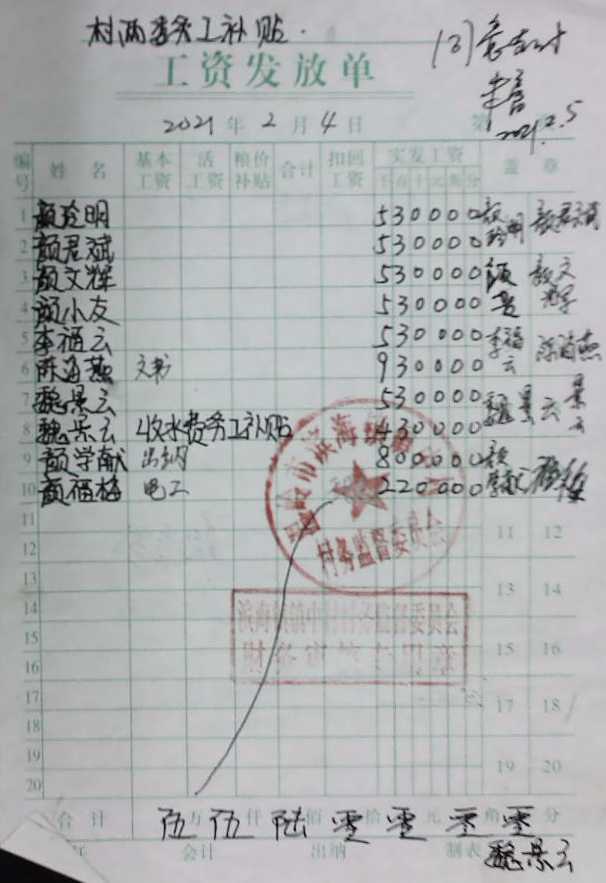 村两委务工补贴.
工资发放单
2021年2月4日 第
2021.2.5
编号 姓名 基本工资 活工资 粮价补贴 合计 扣回工资 实发工资 盖章
千百十元角分
1 颜玲明 530000 颜玲明 颜君斌
2 颜君斌 530000
3 颜文辉 530000 颜 颜文辉
4 颜小友 530000
5 李福云 530000 李福云 陈海燕
6 陈海燕 文书 930000
7 魏景云 530000 魏景云 景云
8 魏景云 收水费务工补贴 430000
9 颜学献 出纳 800000 颜学献
10 颜福梅 电工 220000
11 11 12
12
13 13 14
14
15 15 16
16
17 17 18
18
19 19 20
20
合计 伍万伍仟陆佰零拾零元零角零分
会计 出纳 制表 魏景云
村务监督委员会